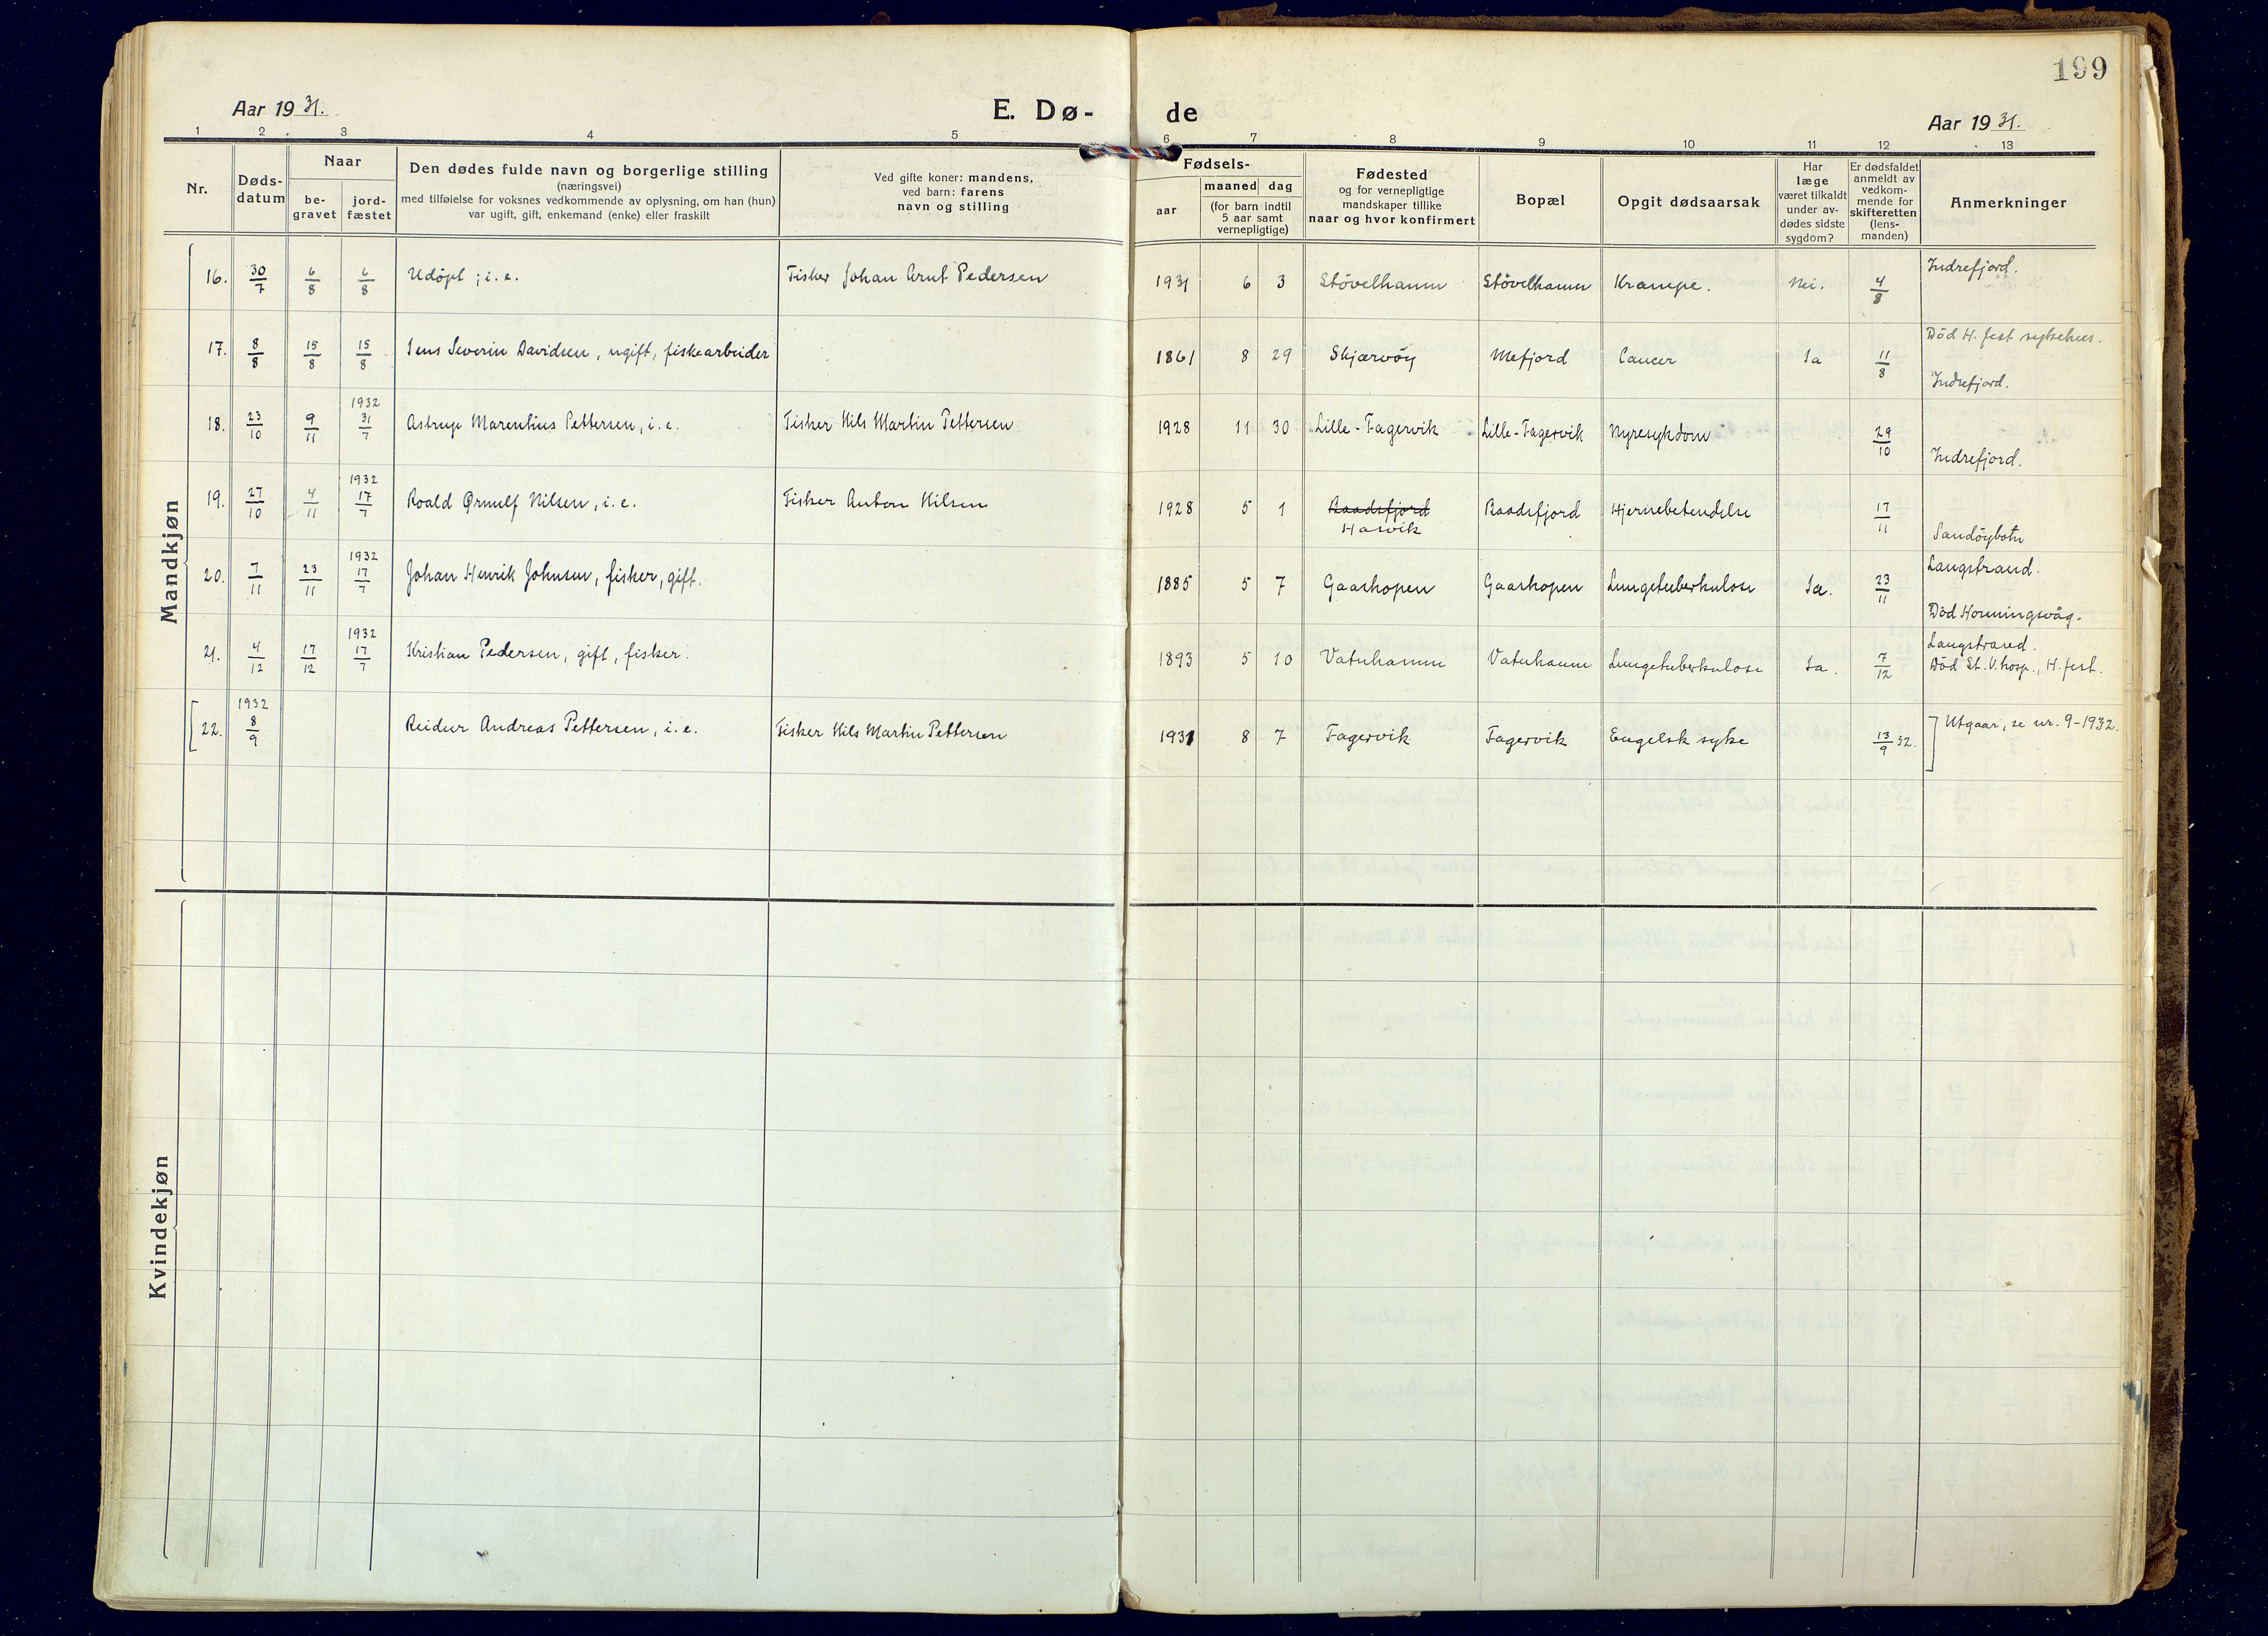 199
Aar 1931.
E. Dø-
de
Aar 1931.
1 2 3 4 5 6 7 8 9 10 11 12 13
Nr.
Døds-
datum
Naar
be-
gravet
jord-
fæstet
Den dødes fulde navn og borgerlige stilling
(næringsvei)
med tilføielse for voksnes vedkommende av oplysning, om han (hun)
var ugift, gift, enkemand (enke) eller fraskilt
Ved gifte koner: mandens,
ved barn: farens
navn og stilling
Fødsels-
aar
maaned dag
(for barn indtil
5 aar samt
vernepligtige)
Fødested
og for vernepligtige
mandskaper tillike
naar og hvor konfirmert
Bopæl
Opgit dødsaarsak
Har
læge
været tilkaldt
under av-
dødes sidste
sygdom?
Er dødsfaldet
anmeldt av
vedkom-
mende for
skifteretten
(lens-
manden)
Anmerkninger
Mandkjøn
16. 30/7 6/8 6/8 Udöpt, i. e. Fisker Johan Arnt Pedersen 1931 6 3 Stövelhamn Stövelhamn Krampe. Nei. 4/8 Indrefjord.
17. 8/8 15/8 15/8 Jens Severin Davidsen, ugift, fiskearbeider 1861 8 29 Skjærvöy Mefjord Cancer Ja 11/8 Död H.fest sykehus.
Indrefjord.
18. 23/10 9/11 1932 31/7 Astrup Marentius Pettersen, i. e. Fisker Nils Martin Pettersen 1928 11 30 Lille-Fagervik Lille-Fagervik Nyresykdom 29/10 Indrefjord.
19. 27/10 4/11 1932 17/7 Roald Ørnulf Nilsen, i. e. Fisker Anton Nilsen 1928 5 1 Baadsfjord Baadsfjord Hjernebetendelse 17/11 Sandöybotn
Hasvik
20. 7/11 23/11 1932 17/7 Johan Henrik Johnsen, fisker, gift. 1885 5 7 Gaashopen Gaashopen Lungetuberkulose Ja. 23/11 Langstrand.
Död Honningsvåg.
21. 4/12 17/12 1932 17/7 Kristian Pedersen, gift, fisker. 1893 5 10 Vatnhamn Vatnhamn Lungetuberkulose Ja. 7/12 Langstrand.
Död St. V. hosp., H.fest.
[22. 1932 8/9 Reidur Andreas Pettersen, i. e. Fisker Nils Martin Pettersen 1931 8 7 Fagervik Fagervik Engelsk syke 13/9 32. ] Utgaar, se nr. 9-1932.
Kvindekjøn